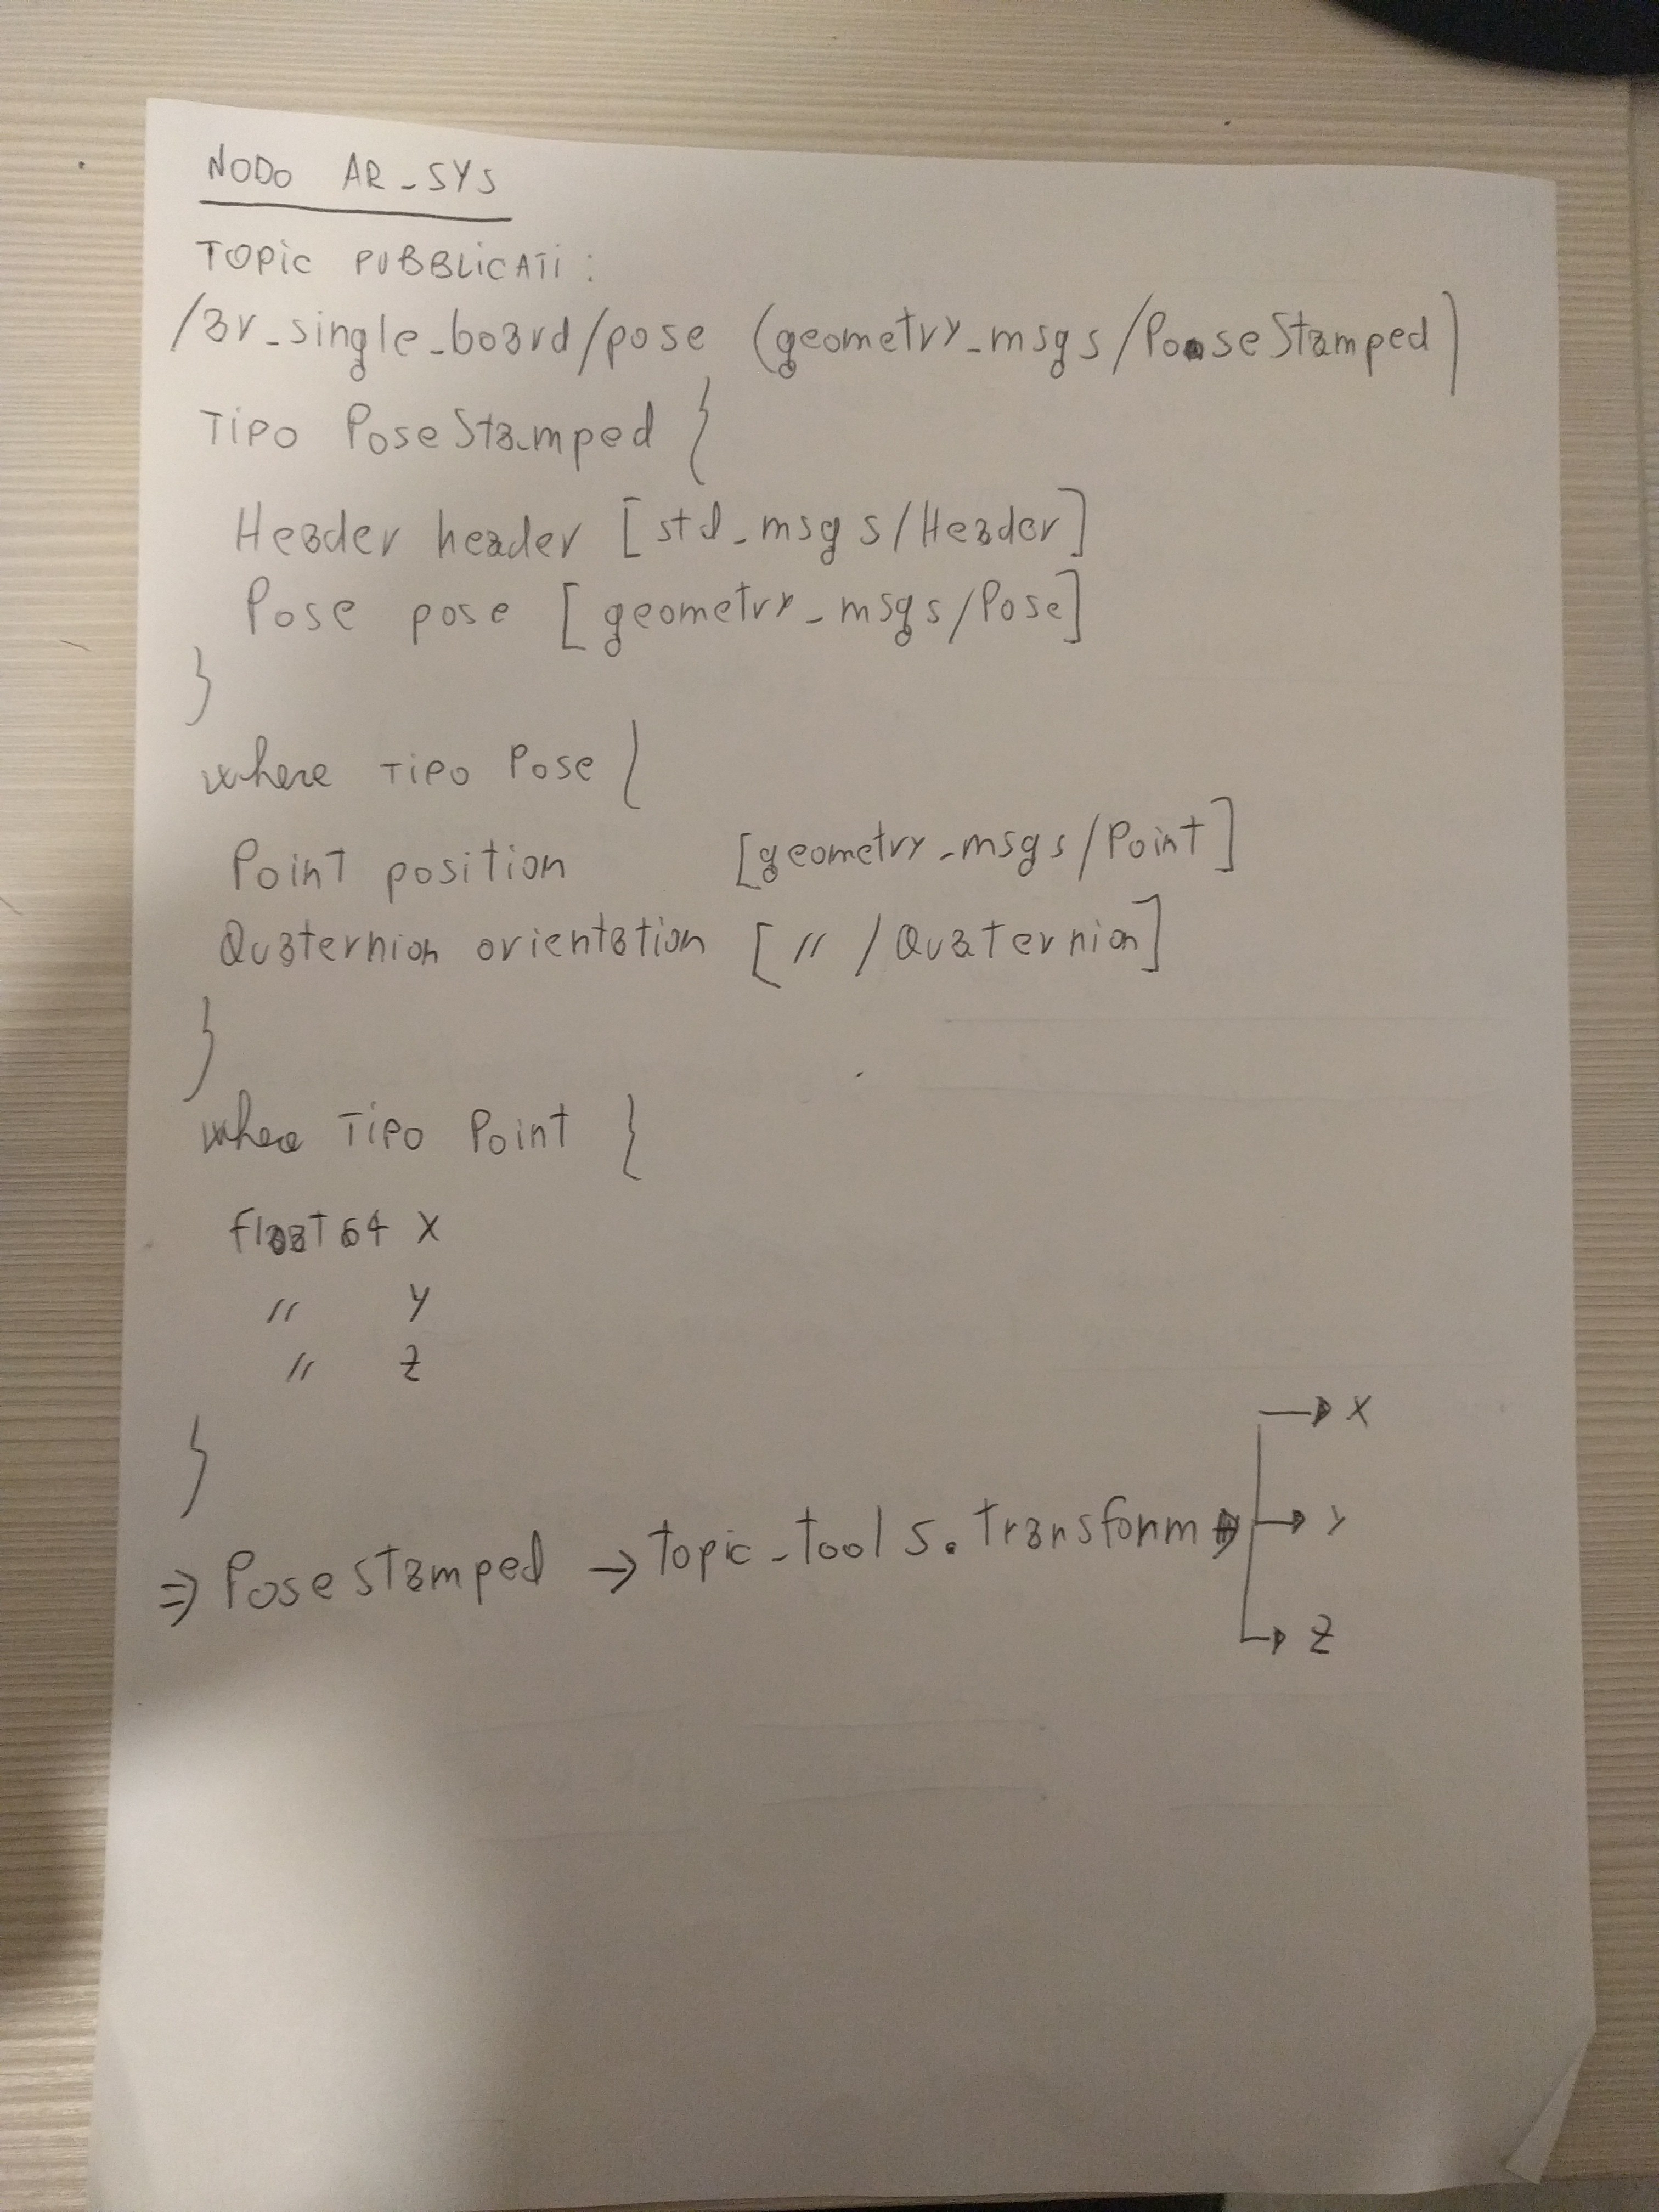 NODO AR_SYS
TOPIC PUBBLICATI:
/ar_single_board/pose (geometry_msgs/PoseStamped)
TIPO PoseStamped {
Header header [std_msgs/Header]
Pose pose [geometry_msgs/Pose]
}
where TIPO Pose {
Point position [geometry_msgs/Point]
Quaternion orientation [ " /Quaternion]
}
where TIPO Point {
float64 X
" Y
" Z
}
⇒ PoseStamped → topic_tools.transform → → X
→ Y
→ Z